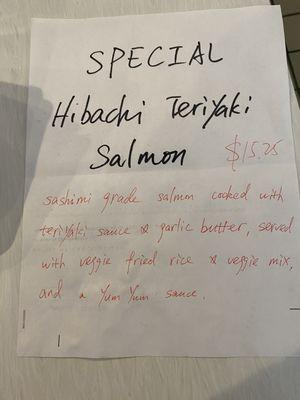 SPECIAL
Hibachi Teriyaki
Salmon $15.25
sashimi grade salmon cooked with
teriyaki sauce & garlic butter, served
with veggie fried rice & veggie mix,
and a Yum Yum sauce.